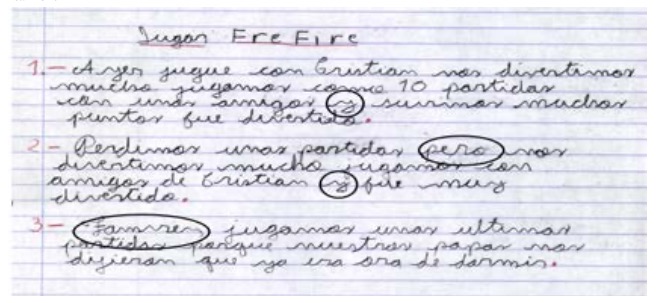 Jugar Ere Fire
1.- Ayer jugue con Cristian nos divertimos
mucho jugamos como 10 partidas
con unos amigos y suvimos muchos
puntos fue divertido.
2- Perdimos unas partidas pero nos
divertimos mucho jugamos con
amigos de Cristian y fue muy
divertido.
3- Tamvien jugamos unas ultimas
partidas porque nuestros papas nos
digieron que ya era ora de dormir.